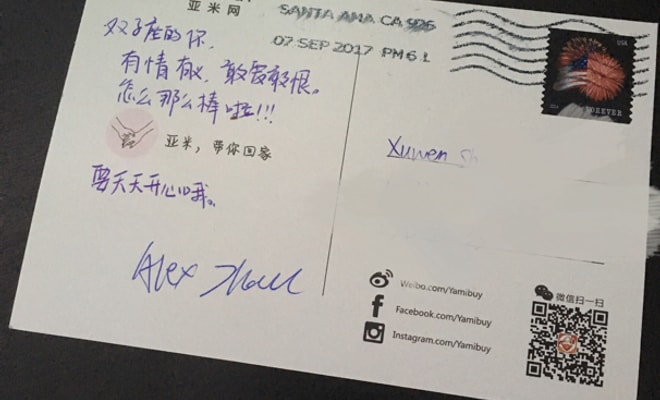 亚米网
双子座的你，
有情有义，敢爱敢恨。
怎么那么棒啦!!!
亚米，带你回家
要天天开心哦。
Alex
SANTA ANA CA 926
07 SEP 2017 PM 6 L
USA
FOREVER
Xuwen Sh
Weibo.com/Yamibuy
Facebook.com/Yamibuy
Instagram.com/Yamibuy
微信扫一扫